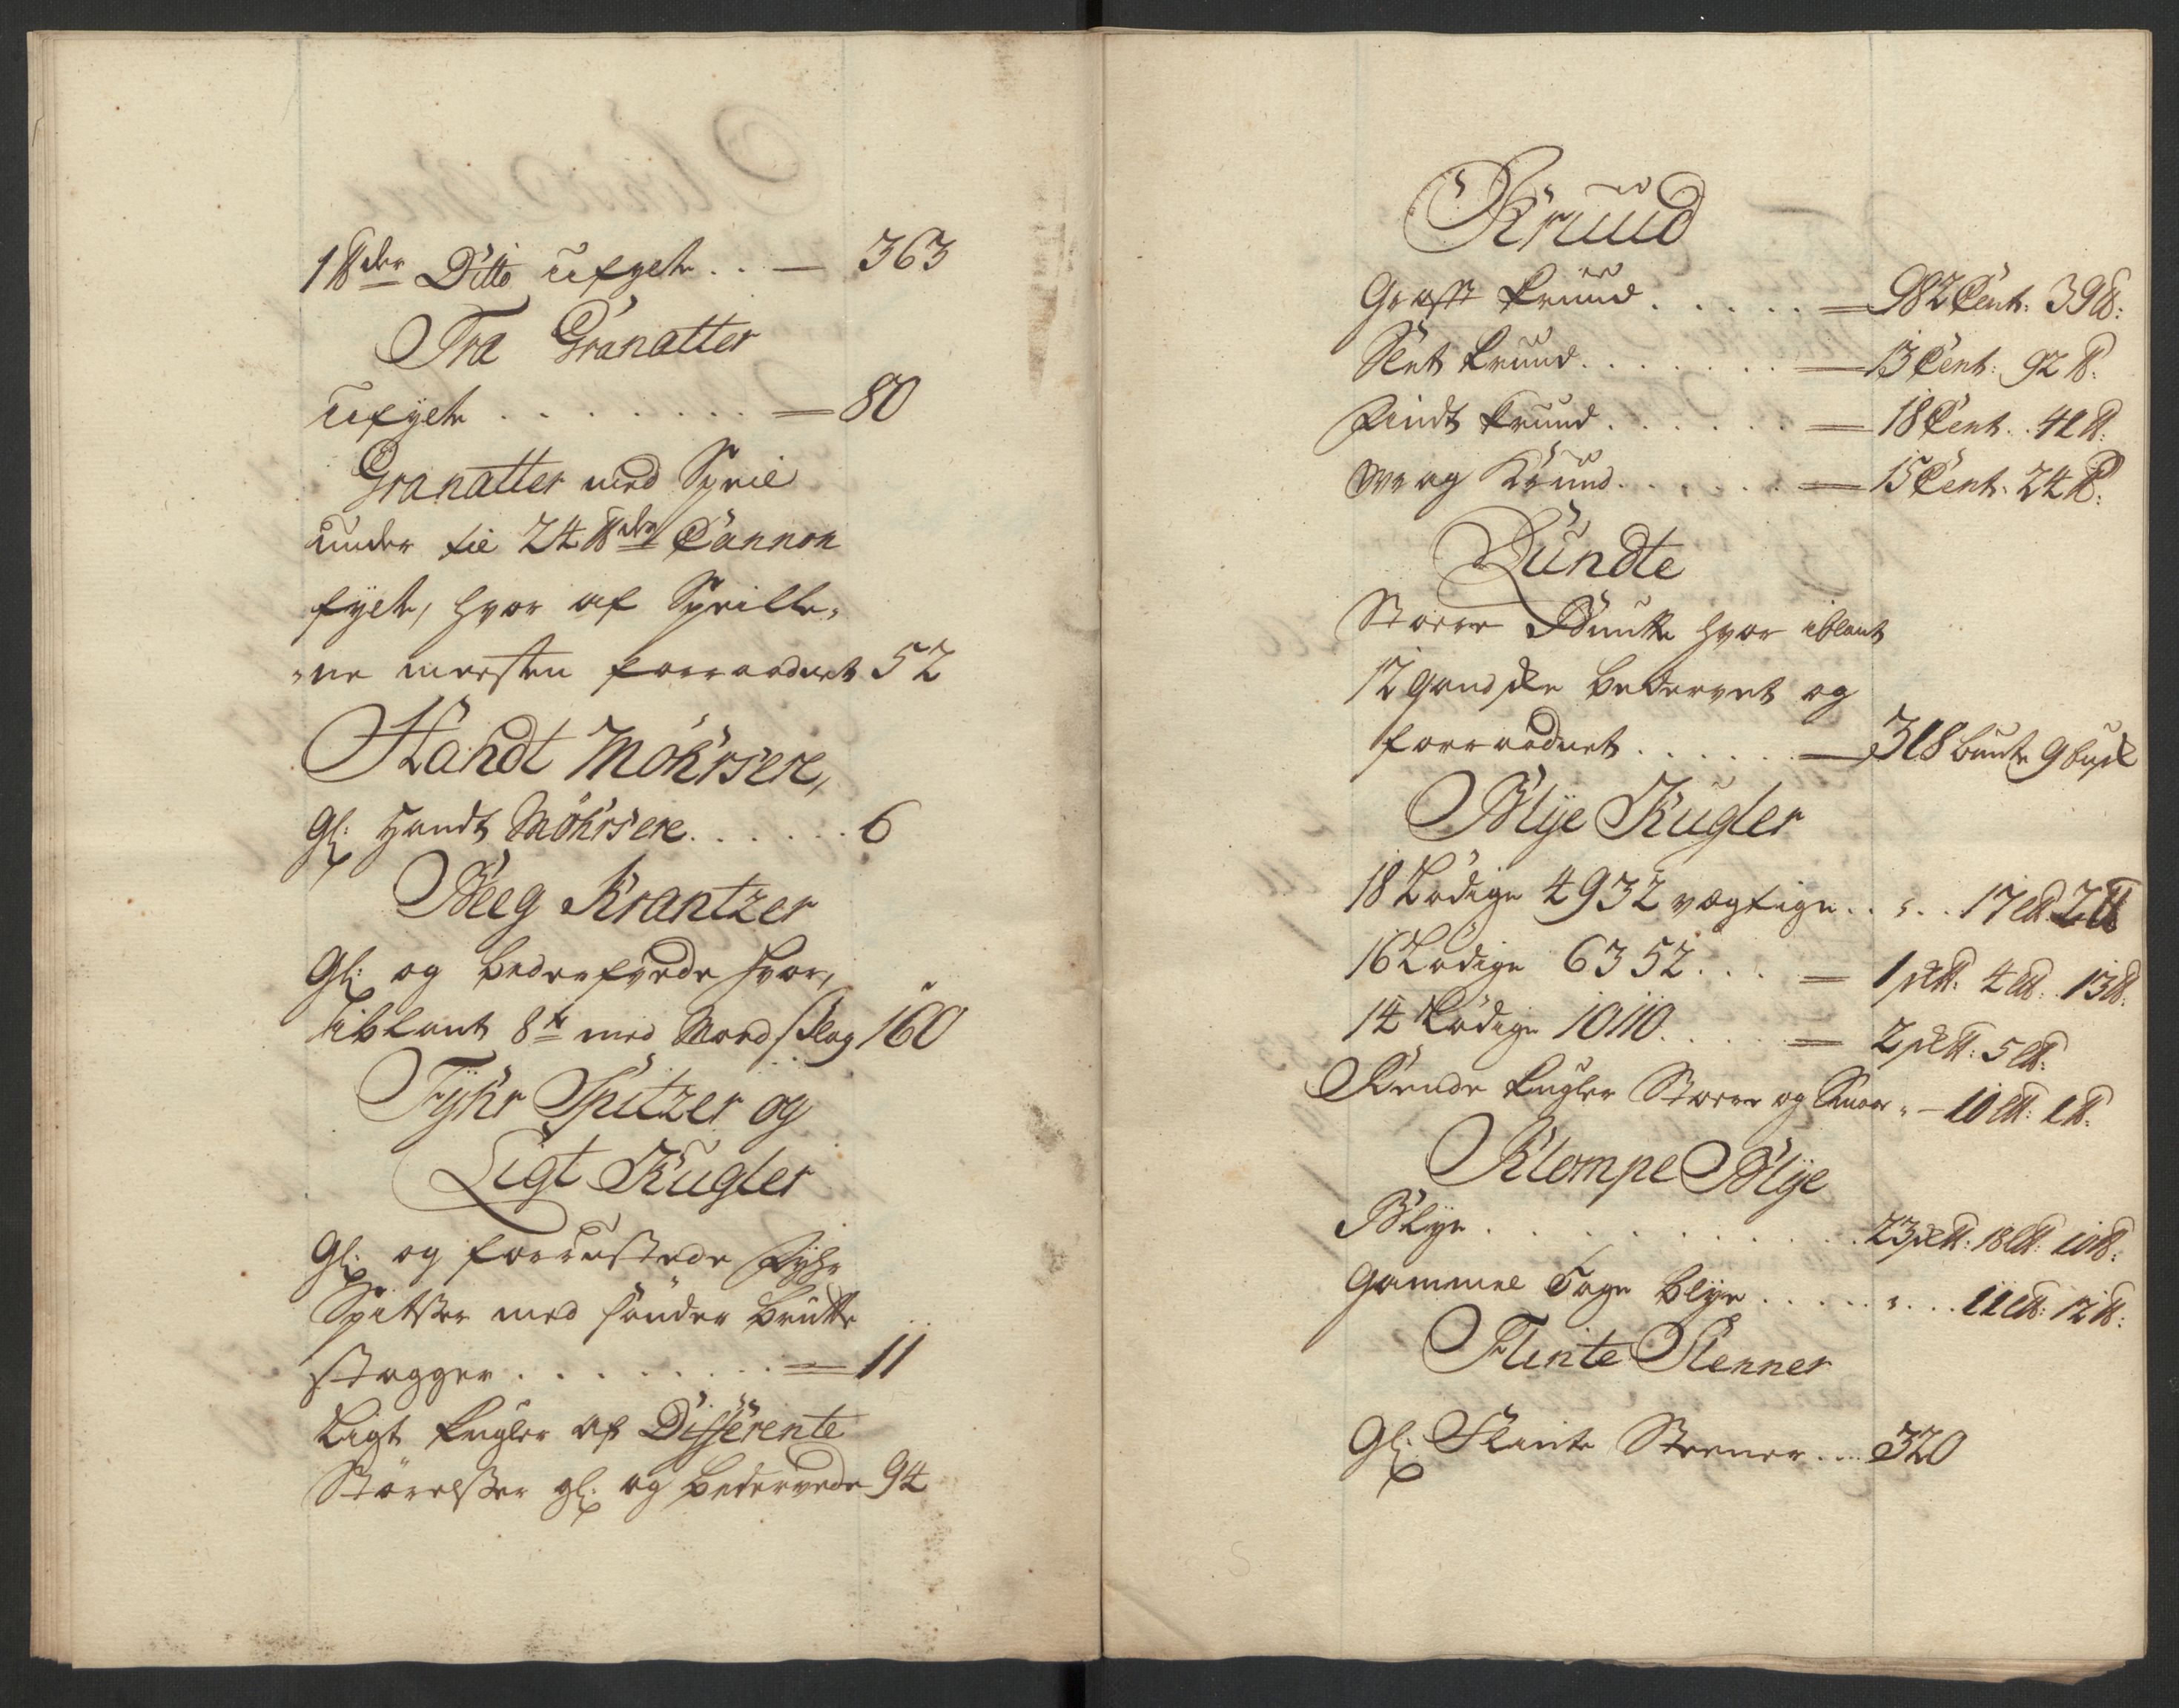 1 ℔der Ditto ufylt . . — 363
Træ Granatter
ufylt . . . . . . . . = 80
Granatter med Speil
under til 24 ℔der Cannon
fylt, hvor af Speille,
,,ne meesten forraadnet 52
Handt Möhrsere,
Gl: Handt Möhrsere . . . . . . 6
Beeg Krantzer
Gl: og bederfvede hvor,
iblant 8te med Mord Slag 160
Fyhr Spitzer og
Ligt Kugler
Gl: og forrustede Fyhr
Spitsser med sönder brutte
stagger . . . . . . . = 11
Ligt kugler af Differente
Störelsser gl: og bedervede 94
Kruud
Groft kruud . . . . . = 982 Cent: 39 ℔:
Slet kruud . . . . . . = 13 Cent: 92 ℔:
Findt kruud . . . . . . = 18 Cent. 41 ℔:
Wrag Kruud . . . . . . = 15 Cent: 24 ℔:
Lundte
Storre Bunte hvor iblant
12 gandske bedervet og
forraadnet . . . . . = 318 bunte 9 buge
Blye Kugler
18 Lödige 4932 vegtige . . „ . . 17 L℔ 2 ℔
16 Lödige 6352 . . . = 1 sk℔: 4 L℔: 13 ℔:
14 Lödige 10110 . . . . = 2 sk℔: 5 L℔:
Rende kugler Storre og Smaa „ — 10 L℔: 1 ℔:
Klompe Blye
Blye . . . . . . . . . . 23 sk℔: 18 L℔: 10 ℔:
Gammel Tage blye . . . . . „ . . . 11 L℔: 12 ℔:
Flinte Stenner
Gl: Flinte Steener . . . 320